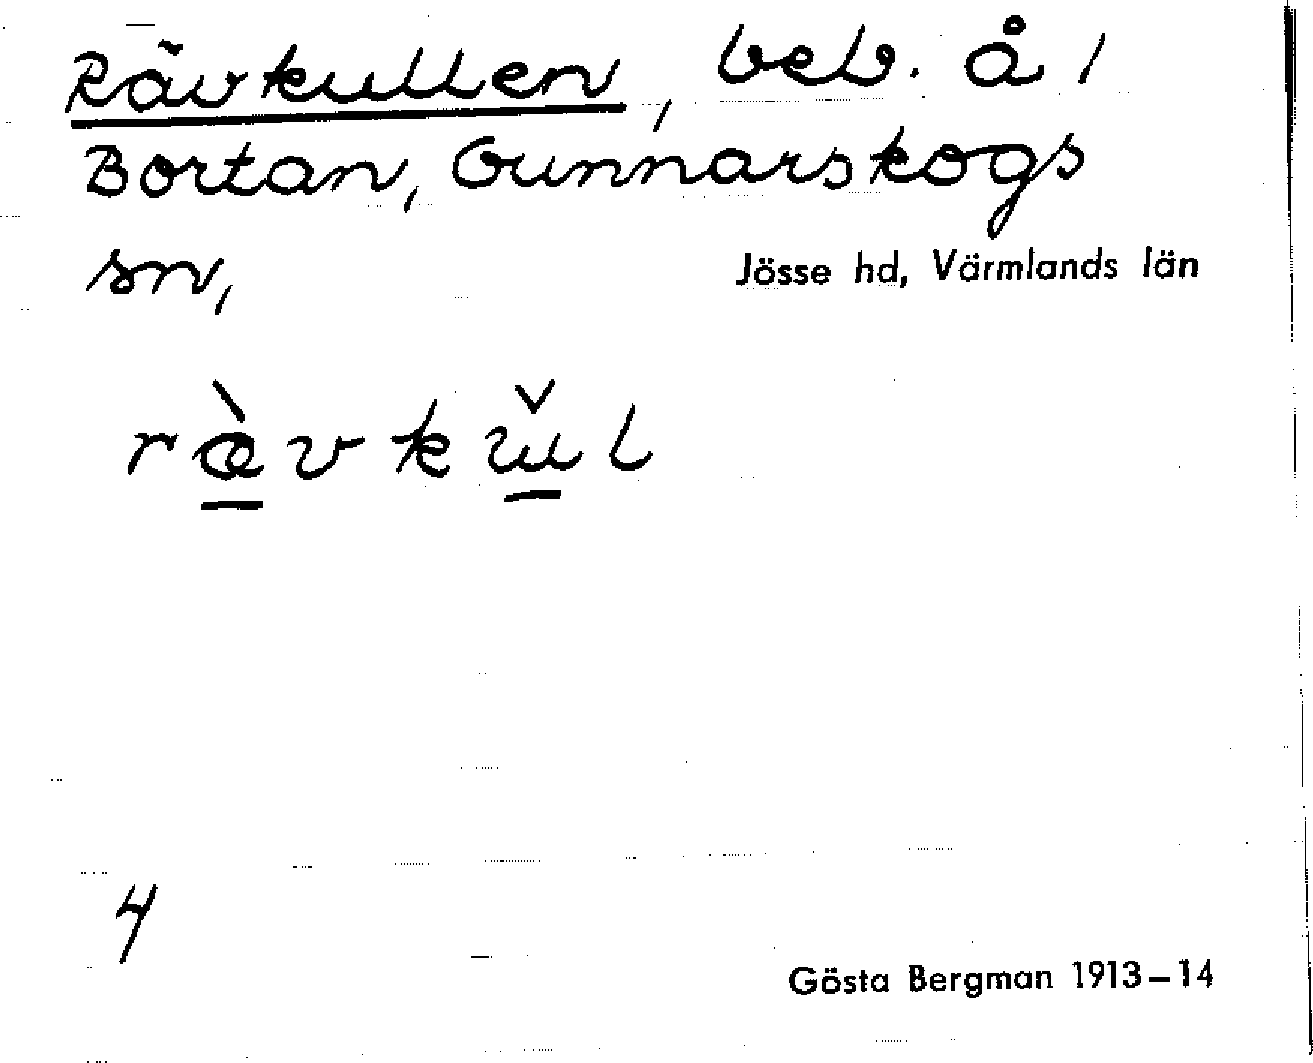 Rävkullen, beb. å 1
Bortan, Gunnarskogs
sn,
Jösse hd, Värmlands län
ræ̠̀vkǔ̠l
4
Gösta Bergman 1913–14